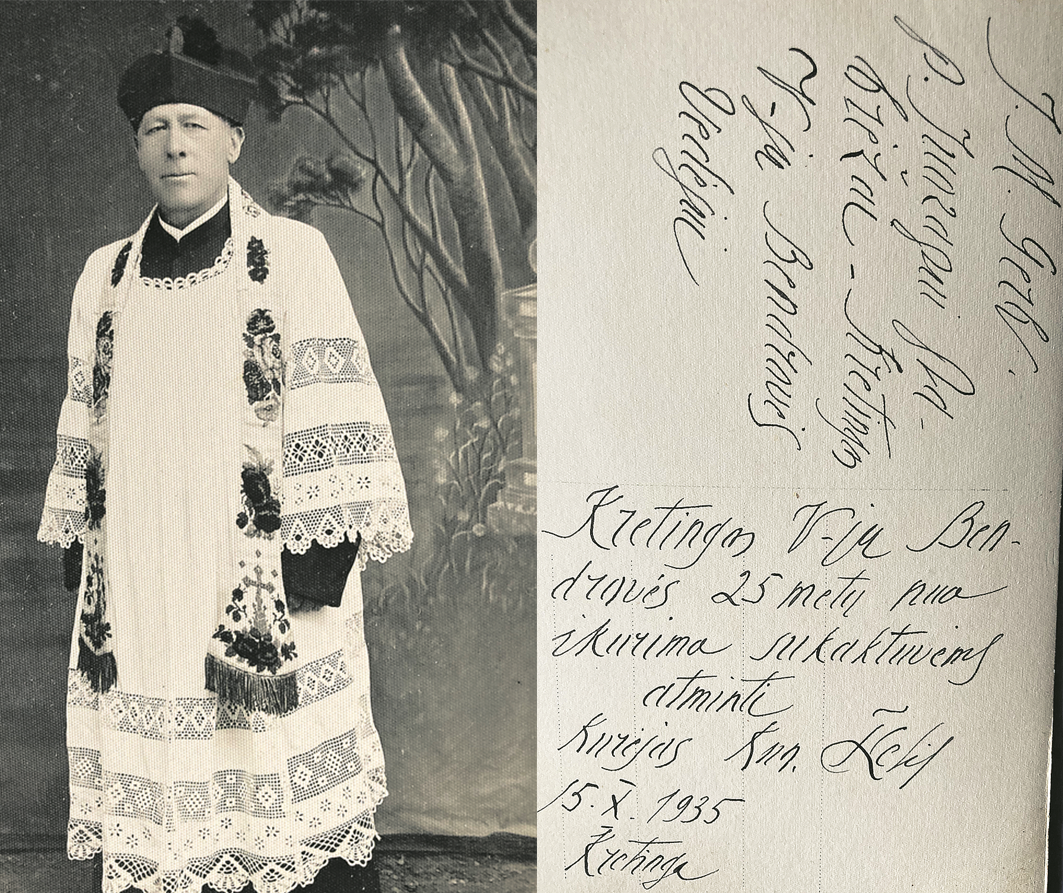 J. M. Gerb.
p. Juozapui Pa-
Kretingos
V-jų Bendrovės
Vedėjui
Kretingos V-jų Ben-
drovės 25 metų nuo
įkurimo sukaktuvėms
atminti
kūrėjas kun.
15.X.1935
Kretinga